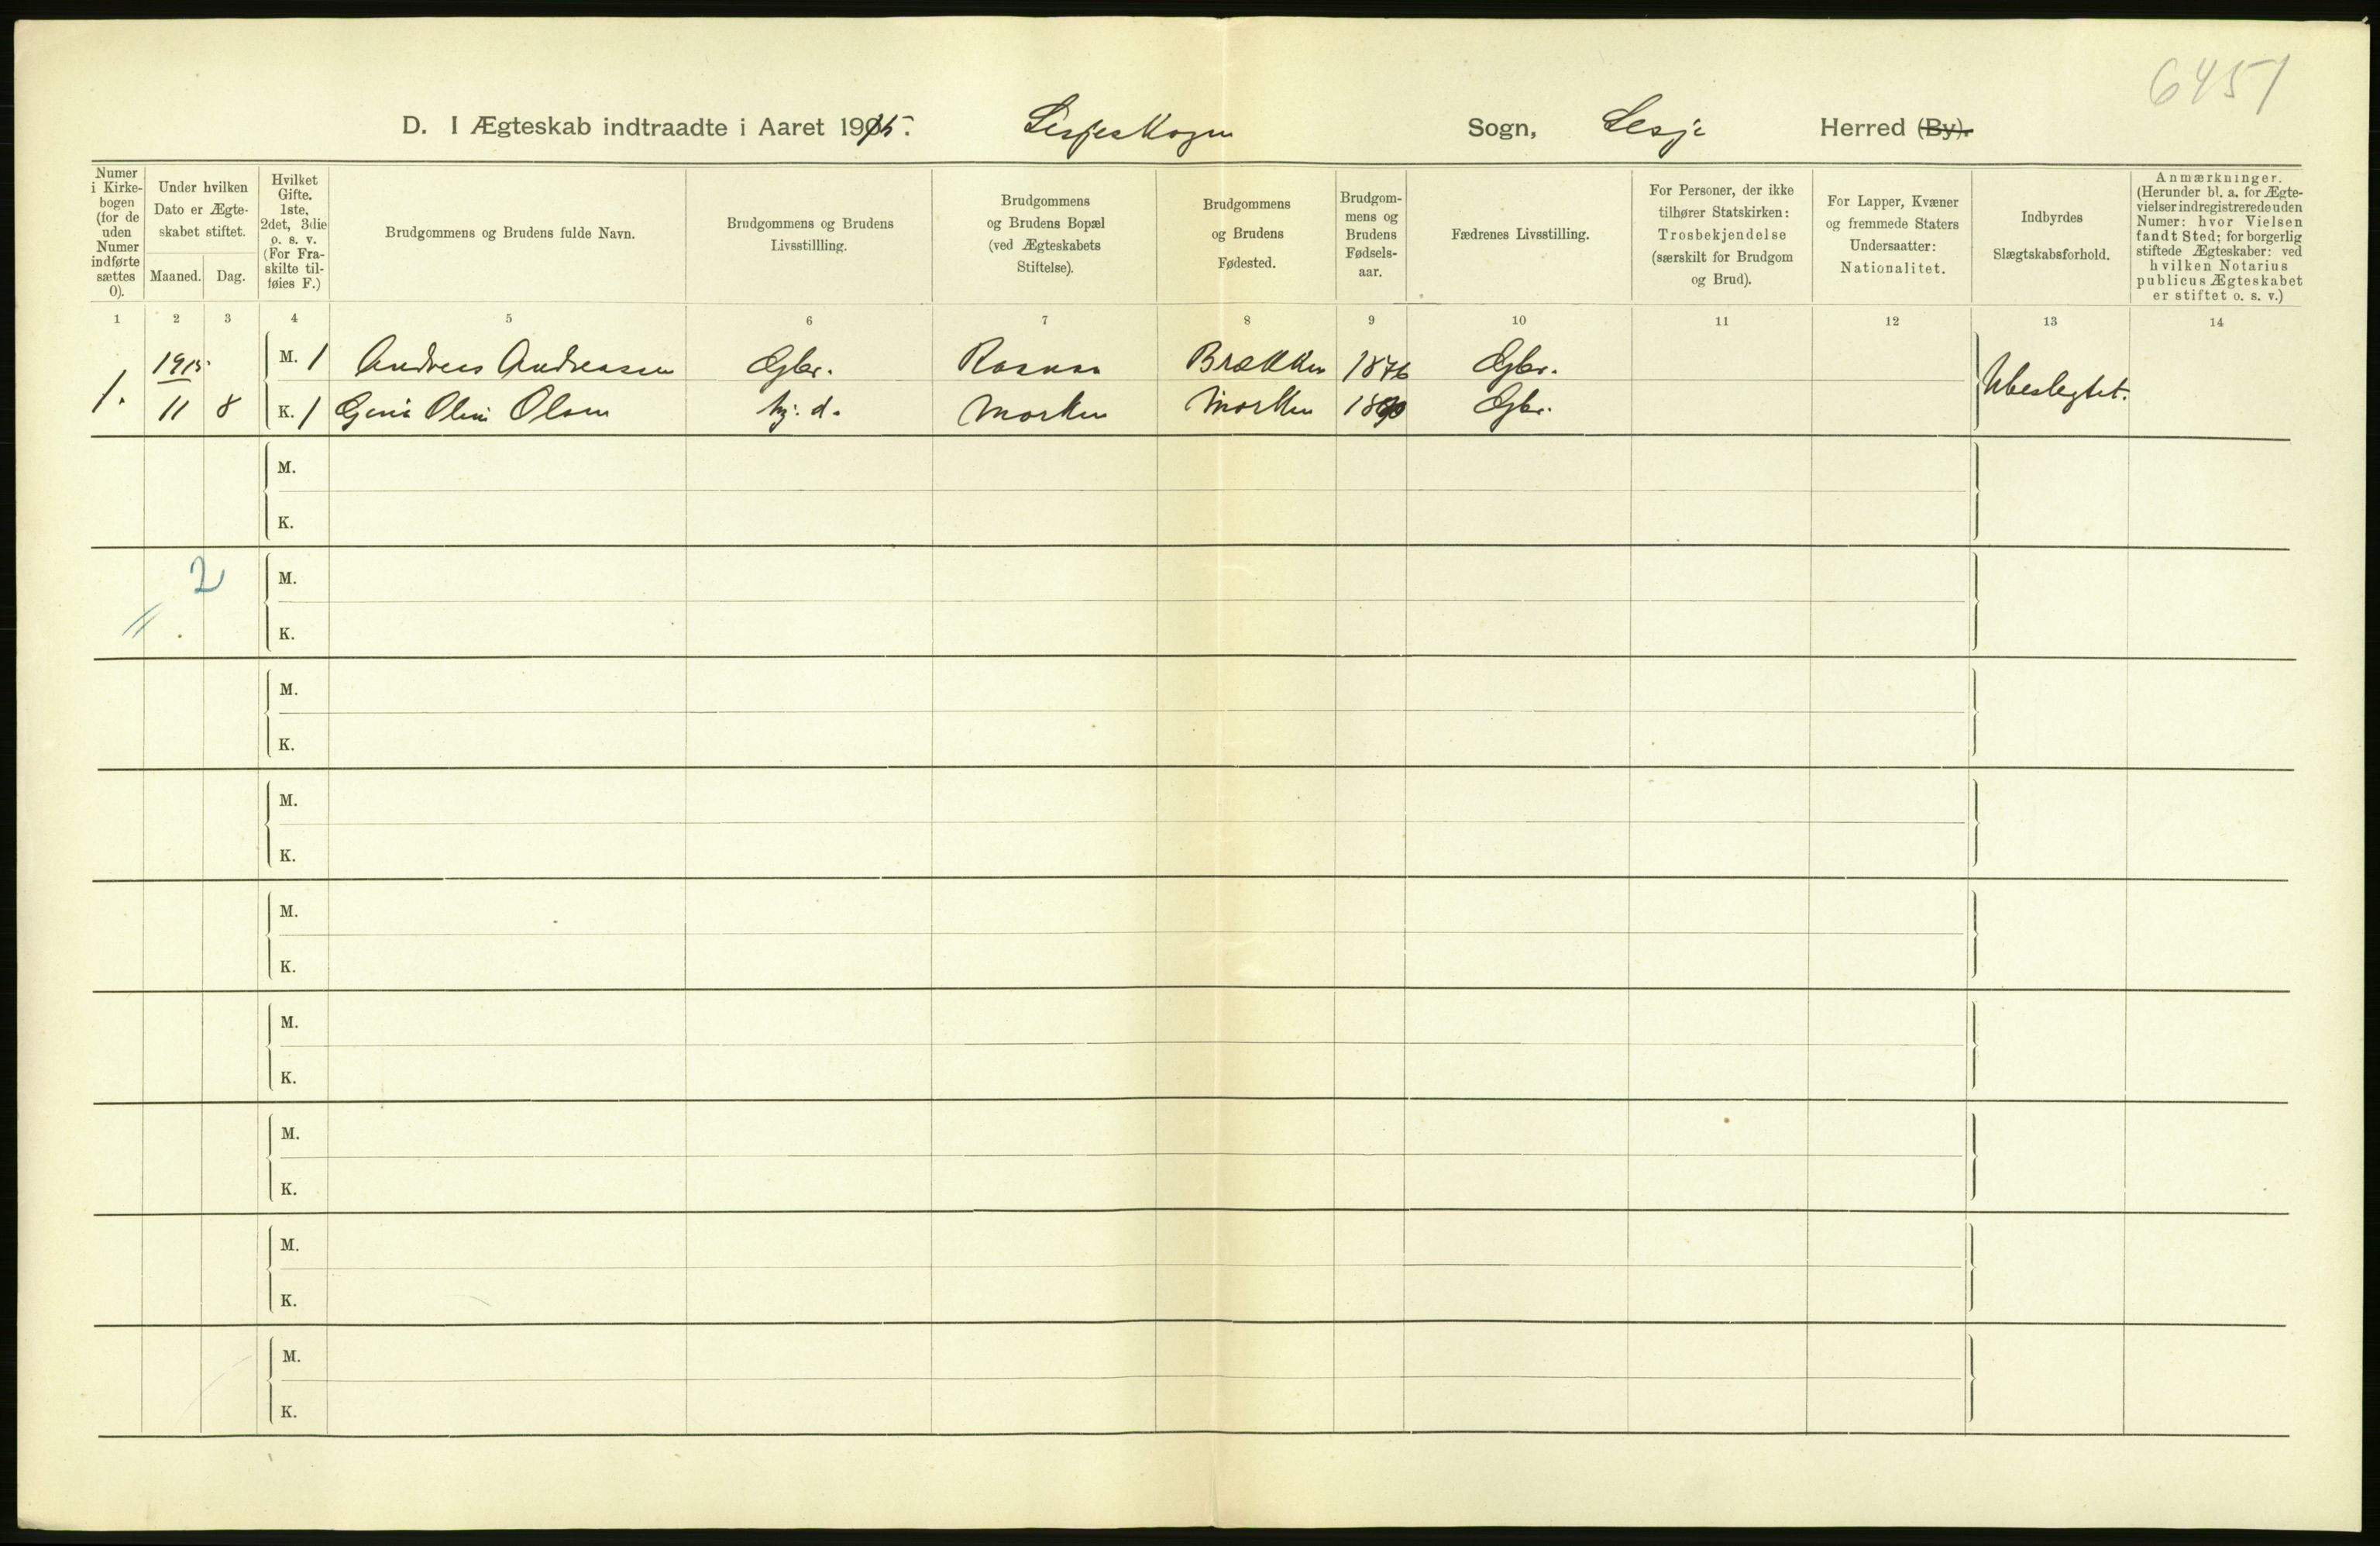 6451
D. I Ægteskab indtraadte i Aaret 1915. Lesjeskogen Sogn, Lesje Herred (By).
Numer i Kirke-bogen (for de uden Numer indførte sættes 0).
Under hvilken Dato er Ægte-skabet stiftet.
Maaned. Dag.
Hvilket Gifte. 1ste, 2det, 3die o. s. v. (For Fra-skilte til-føies F.)
Brudgommens og Brudens fulde Navn.
Brudgommens og Brudens Livsstillling.
Brudgommens og Brudens Bopæl (ved Ægteskabets Stiftelse).
Brudgommens og Brudens Fødested.
Brudgom-mens og Brudens Fødsels-aar.
Fædrenes Livsstilling.
For Personer, der ikke tilhører Statskirken: Trosbekjendelse (særskilt for Brudgom og Brud).
For Lapper, Kvæner og fremmede Staters Undersaatter: Nationalitet.
Indbyrdes Slægtskabsforhold.
Anmærkninger. (Herunder bl. a. for Ægte-vielser indregistrerede uden Numer: hvor Vielsen fandt Sted; for borgerlig stiftede Ægteskaber: ved hvilken Notarius publicus Ægteskabet er stiftet o. s. v.)
1 2 3 4 5 6 7 8 9 10 11 12 13 14
1915 M. 1 Andreas Andreassen Gbr. Brækken 1876 Gbr.
1. Ubeslegtet.
11 8 K. 1 Gina Oline Olsen hj. d. Morken Morken 1890 Gbr.
M.
K.
2
M.
K.
M.
K.
M.
K.
M.
K.
M.
K.
M.
K.
M.
K.
M.
K.